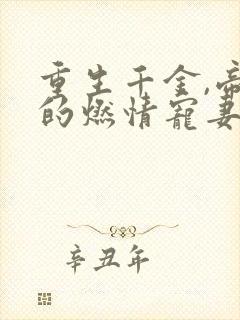 重生千金,帝
的燃情宠妻
辛丑年